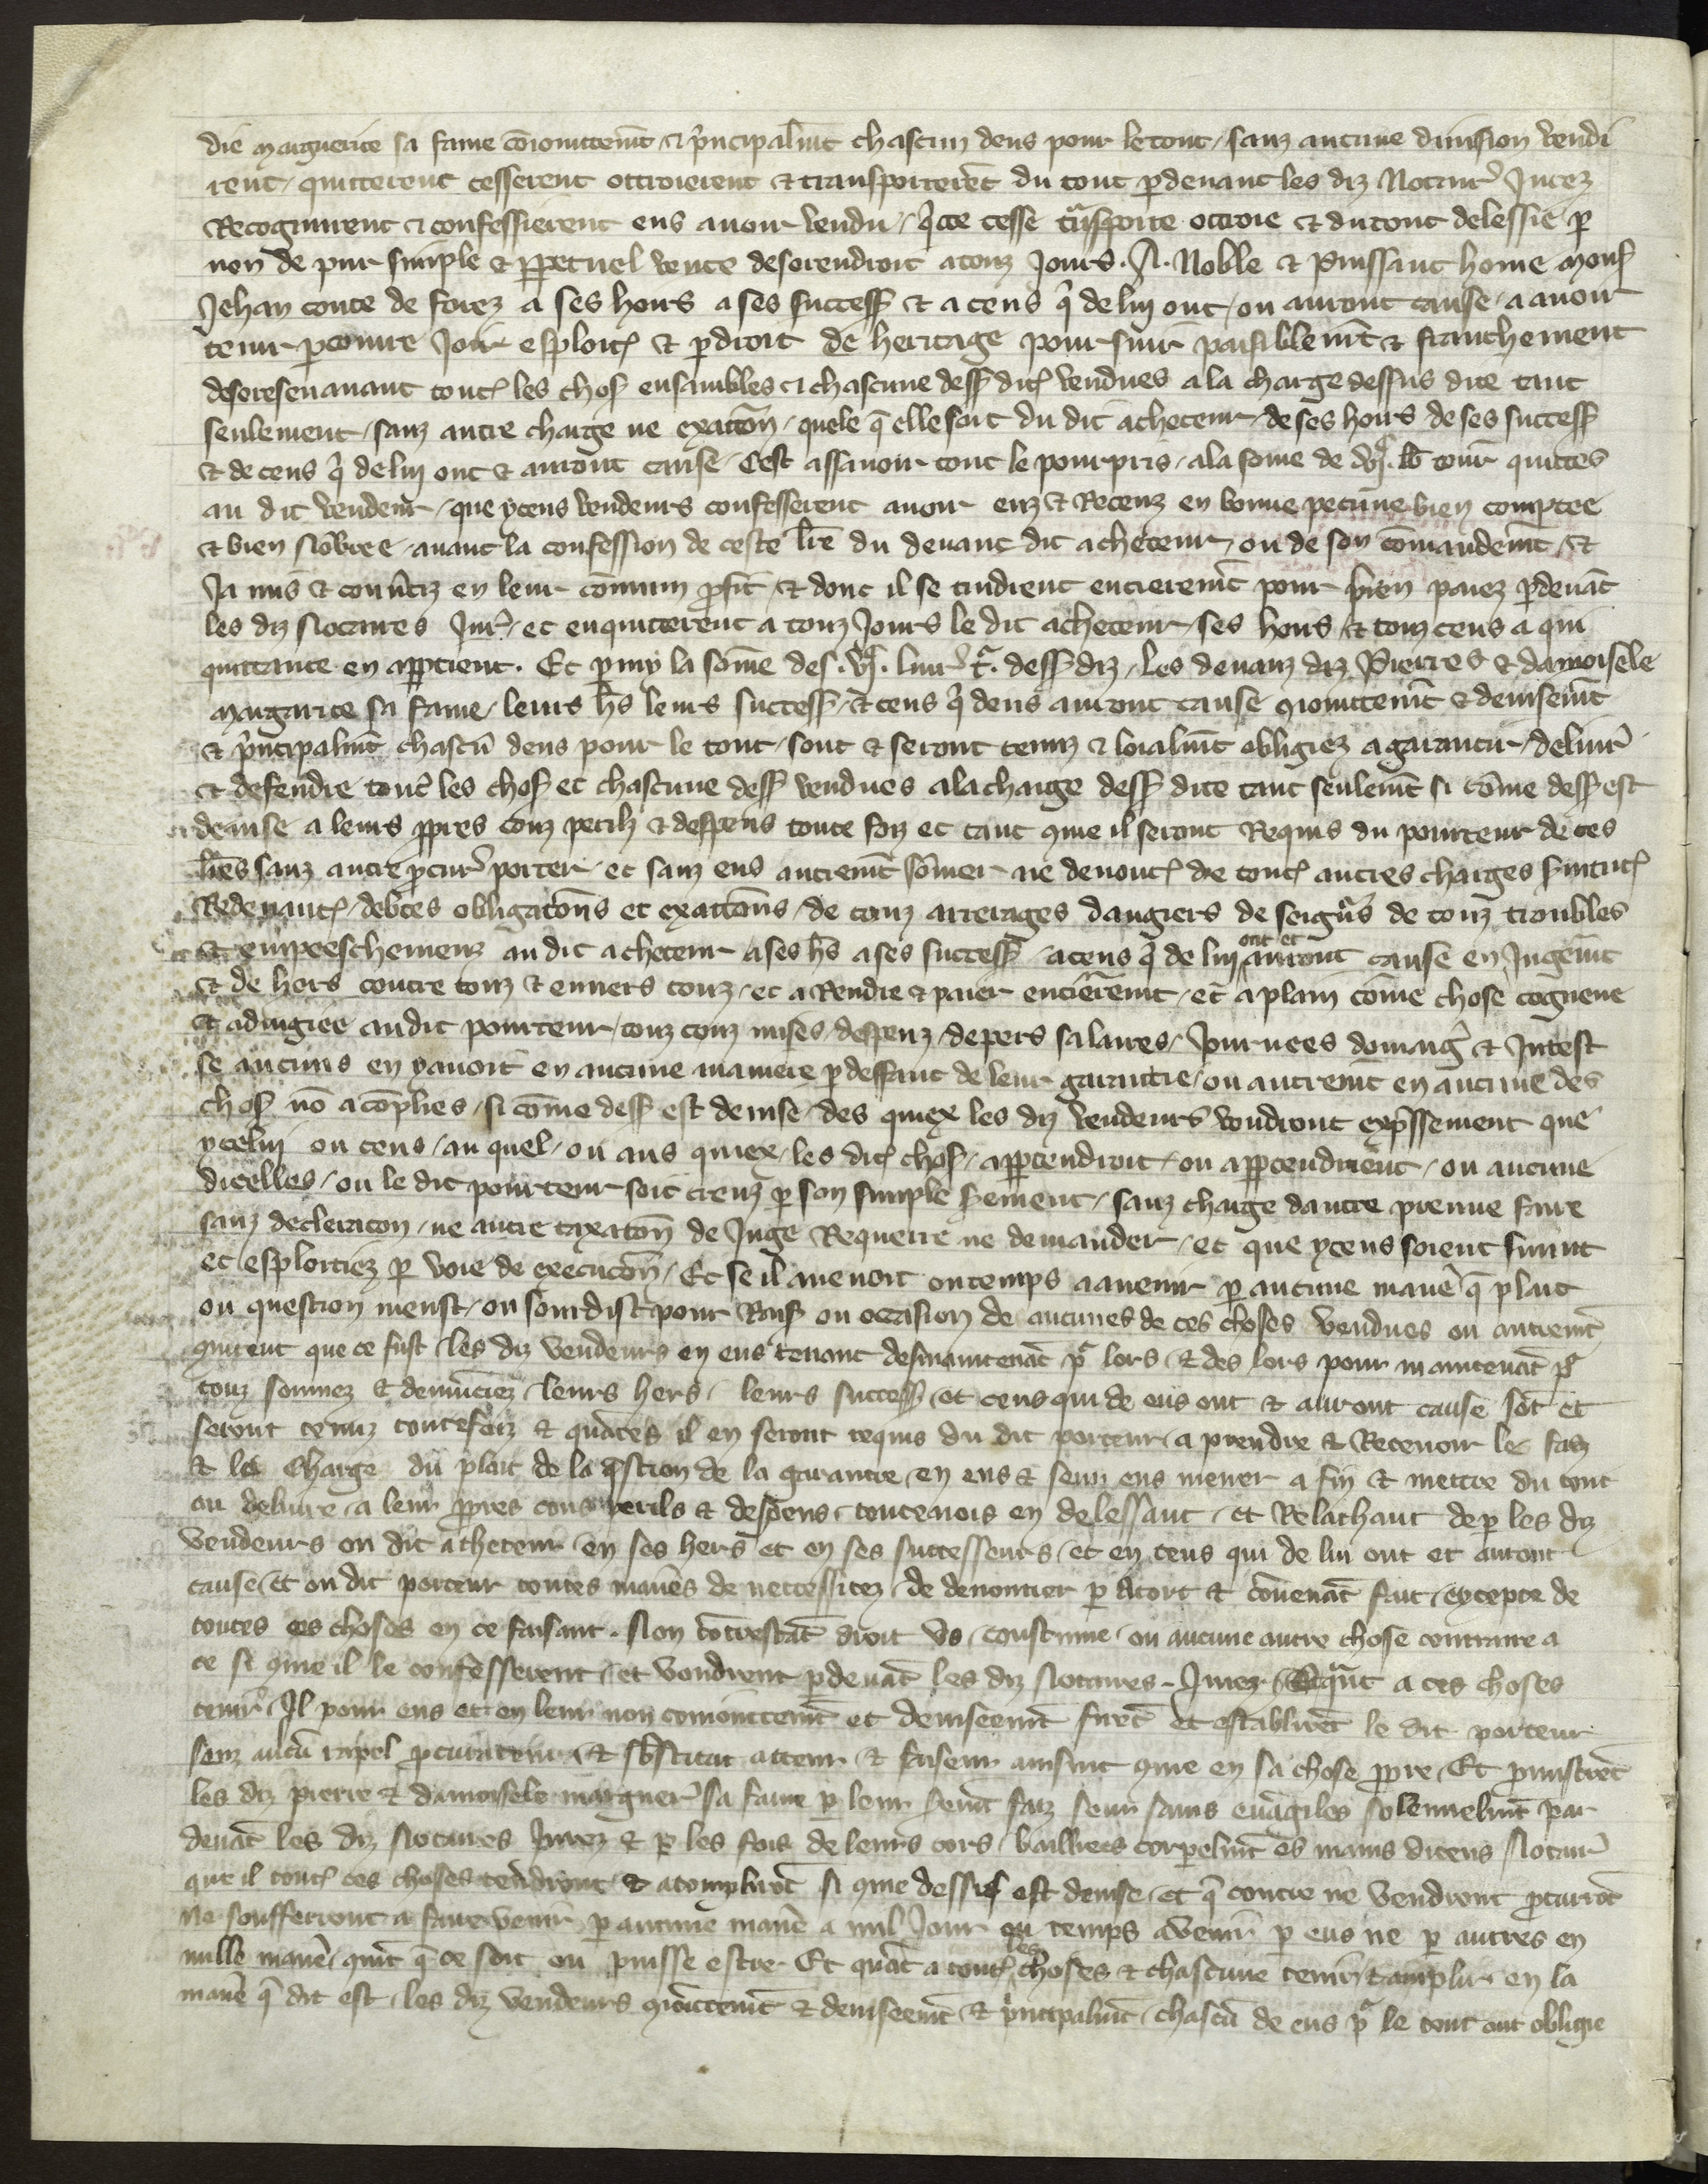 die marguerite sa fame cōioinctem̄t & p̄ncipalm̄t chascun deus pour le tout / sanz aucune diuision vendi
rent / quitterent cesserent ottroierent & transporterēt du tout ꝑdeuant les diz Notair̾ Jurez
Recognurent & confesserent eus auoir vendu / q̄tte cesse trāsporte ottroie & du tout delessie ꝑ
non de pur simple & ꝑpetuel vente desorendroit a touz Jours . A . Noble & Puissant home mons̾
Jehan conte de forez a ses hoirs a ses success̾ & a ceus q̄ de lui ont / ou auront cause / a auoir
tenir ꝑ couure Joir esploit̾ & ꝑ droit de heritage poursuir paisiblem̄t & franchement
desoresenauant tout̾ les chos̾ ensambles & chascune dess̾ dit̾ vendues a la charge dessus dite tant
seulement / sanz autre charge ne exaction̄ / quele q̄ elle soit du dit acheteur / de ses hoirs de ses success̾
& de ceus q̄ de lui ont & auront cause / Cest assauoir tout le pourpris / a la some de lb̄ tour̄ quittes
au dit vendeur / que yceus vendeurs confesserent auoir euz & Receuz en bonne pecune bien comptee
& bien nōbree / auant la confession de ceste lr̄e du deuant dit acheteur / ou de son cōmandem̄t / &
Ja mis & conuertiz en leur cōmun ꝓfit / & dont il se tindrent entierem̄t pour bien paiez ꝑdeuāt
les diz notaires Jur̾ / et enquitterent a touz Jours le dit acheteur / ses hoirs / & touz ceus a qui
quittance en apꝑtient . Et ꝑmy la som̄e des . liur̾ t̾ . dess̾ diz / les deuanz diz Pierres & damoisele
margarite sa fame / leurs h̄s leurs success̾ / & ceus q̄ deus auront cause ꝯioinctem̄t & deuisem̄t
& p̄ncipalm̄t chascū deus pour le tout / sont & seront tenuz & loialm̄t obligiez a garantir / deliur̾
& defendre tout̾ les chos̾ et chascune dess̾ vendues a la charge dess̾ dite tant seulem̄t si cōme dess̾ est
deuise a leurs ꝓpres couz perilz & despens toute foiz et tant ꝯme il seront Requis du pourteur de ces
lr̄es sanz autre ꝓcur̾ porter / et sanz eus autrem̄t sōmer ne denonc̾ de tout̾ autres charges seruitut̾
Redeuanc̾ / debtes obligatiōns et exactiōns / de touz arrerages dangiers de seign̄rs de touz troubles
& empeeschemenz au dit acheteur a ses h̄s a ses success̾ / a ceus q̄ de lui ont et auront cause en Jugem̄t
& de hors contre touz & enuers touz / et a Rendre & paier entierem̄t / et a plain cōme chose cogneue
& adiugiee audit pourteur / touz couz mises / despenz / depers salaires / Journees domaig̾ & Jnte̾st
se aucuns en yauoit en aucune maniere ꝑ deffaut de leur garantie / ou autrem̄t en aucune des
chos̾ nō acōplies / si cōme dess̾ est deuise / des quiex les diz vendeurs voudront exp̄ssement que
ycelui ou ceus / au quel / ou aus quiex / les dit̾ chos̾ / apꝑtendroit / ou apꝑtendroient / ou aucune
dicelles / ou le dit pourteur soit creuz ꝑ son simple serement / sanz charge dautre preuue faire
sanz decleracon / ne autre taxatiōn de Juge Requerre ne demander / et que yceus soient suiuit
et esploitiez ꝑ voie de executiōn / Et se il auenoit ou temps a auenir ꝑ aucune manie̾ q̄ plait
ou question meust / ou sourdist pour Rais̾ ou occasion de aucunes de ces choses vendues ou autrem̄t
ꝯment que ce fust / les diz vendeurs en eus tenant desmaintenāt pr̾ lors / & des lors pour maintenāt pr̾
touz sommez & denunciez / leurs hers / leurs success̾ / et ceus qui de eus ont & auront cause sōt et
seront tenuz toutefoiz & quātes il en seront requis du dit porteur / a prendre & Receuoir le faiz
& le charge du plait de la q̄stion de la garantie / en eus & seur eus mener a fin & mettre du tout
ou deliure / a leur ꝓpres cous perils & despens / toutenois en delessant / et Relachant de ꝑ les diz
vendeurs ou dit acheteur / en ses hers et en ses successeurs / et en ceus qui de lui ont et auront
cause / et ou dit porteur toutes manie̾s de necessitez / de denoncier ꝑ Acort & cōuenāt fait / excepte de
toutes ces choses en ce faisant . Non cōtrestāt droit vs / coustume / ou aucune autre chose contraire a
ce si ꝯme il le confesserent / et voudrent ꝑdeuāt les diz notaires . Jurez / Et quāt a ces choses
tenir / Jl pour eus et en leur non conioinctem̄t et deuiseem̄t firēt et establirēt le dit porteur
senz aucū rapel ꝓcurateur / & sb̄stitut acteur & faiseur ainsint ꝯme en sa chose ꝓpre / Et ꝓmistrēt
les diz pierre & damoisele marguer̾ sa fame ꝑ leur serm̄t faiz seur sains euāgiles solennelm̄t par
deuāt les diz notaires Jurez & ꝑ les fois de leurs cors / bailliees corporelm̄t es mains diceus Notair̾
que il tout̾ ces choses tendront & acomplirōt si ꝯme dessus est deuise / et q̄ contre ne vendront ꝓcurrōt
ne soufferront a faire venir ꝑ aucune manie̾ a nul Jour ou temps avenir ꝑ eus ne ꝑ autres en
nulle manie̾ / ꝯm̄t q̄ ce soit ou puisse estre Et quāt a tout̾ les choses & chascune tenir & amplir en la
manie̾ q̄ dit est / les diz vendeurs ꝯioinctem̄t & deuiseem̄t / & p̄ncipalm̄t / chascū de eus pr̾ le tout ont oblige